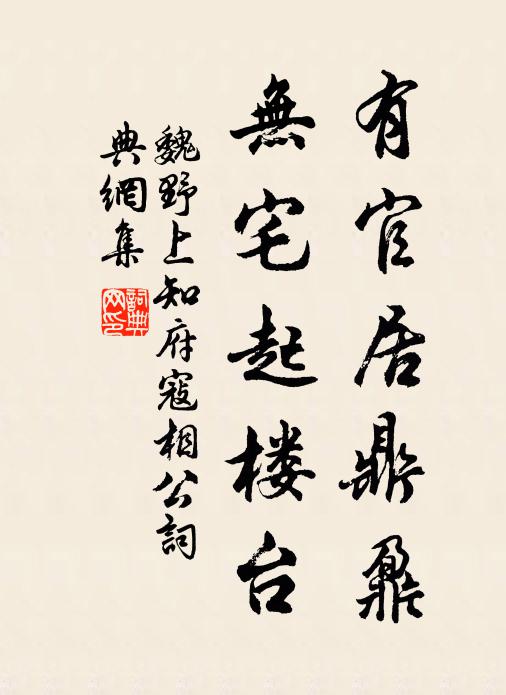 有官居鼎鼐
無宅起楼台
魏野上知府寇相公詞
典網集
詞典网印